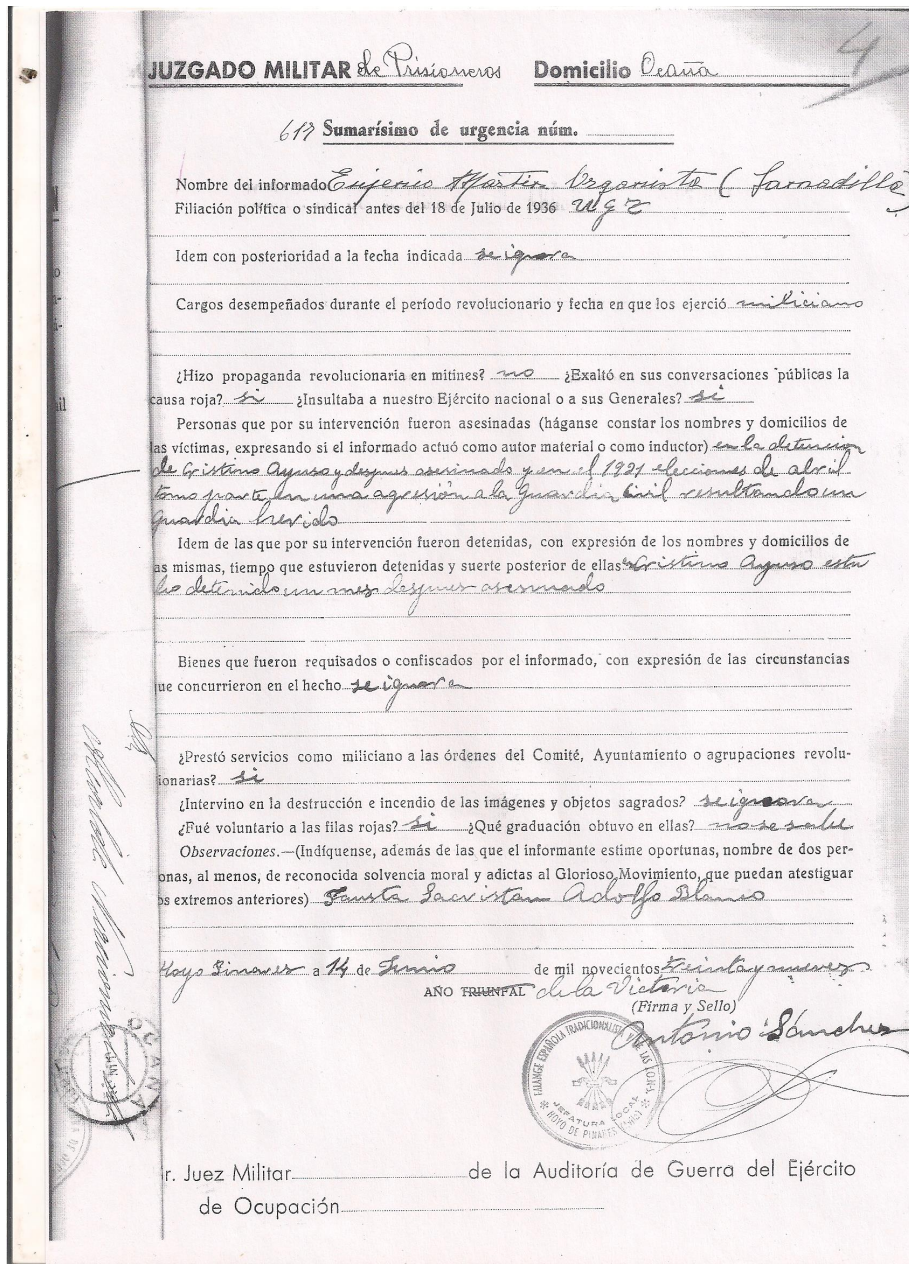 4
JUZGADO MILITAR de Prisioneros Domicilio Ocaña
617 Sumarísimo de urgencia núm.
Nombre del informado Eugenio Martin Organista (
Filiación política o sindical antes del 18 de Julio de 1936 UGT
Idem con posterioridad a la fecha indicada se ignora
Cargos desempeñados durante el período revolucionario y fecha en que los ejerció miliciano
¿Hizo propaganda revolucionaria en mitines? no ¿Exaltó en sus conversaciones públicas la
causa roja? si ¿Insultaba a nuestro Ejército nacional o a sus Generales? si
Personas que por su intervención fueron asesinadas (háganse constar los nombres y domicilios de
las víctimas, expresando si el informado actuó como autor material o como inductor) en la detencion
de Cristino Ayuso y despues asesinado y en el 1931 elecciones de abril
tomo parte en una agresión a la Guardia Civil resultando un
Guardia herido
Idem de las que por su intervención fueron detenidas, con expresión de los nombres y domicilios de
as mismas, tiempo que estuvieron detenidas y suerte posterior de ellas Cristino Ayuso estu
bo detenido un mes despues asesinado
Bienes que fueron requisados o confiscados por el informado, con expresión de las circunstancias
ue concurrieron en el hecho se ignora
¿Prestó servicios como miliciano a las órdenes del Comité, Ayuntamiento o agrupaciones revolu-
ionarias? si
¿Intervino en la destrucción e incendio de las imágenes y objetos sagrados? se ignora
¿Fué voluntario a las filas rojas? si ¿Qué graduación obtuvo en ellas? no se sabe
Observaciones.—(Indíquense, además de las que el informante estime oportunas, nombre de dos per-
onas, al menos, de reconocida solvencia moral y adictas al Glorioso Movimiento, que puedan atestiguar
os extremos anteriores) Fausta Sacristan Adolfo Blanco
Hoyo Pinares a 14 de Junio de mil novecientos treinta y nueve
AÑO TRIUNFAL de la Victoria
(Firma y Sello)
Antonio Sánchez
FALANGE ESPAÑOLA TRADICIONALISTA Y DE LAS J.O.N.S.
JEFATURA LOCAL
HOYO DE PINARES
OCAÑA
r. Juez Militar de la Auditoría de Guerra del Ejército
de Ocupación